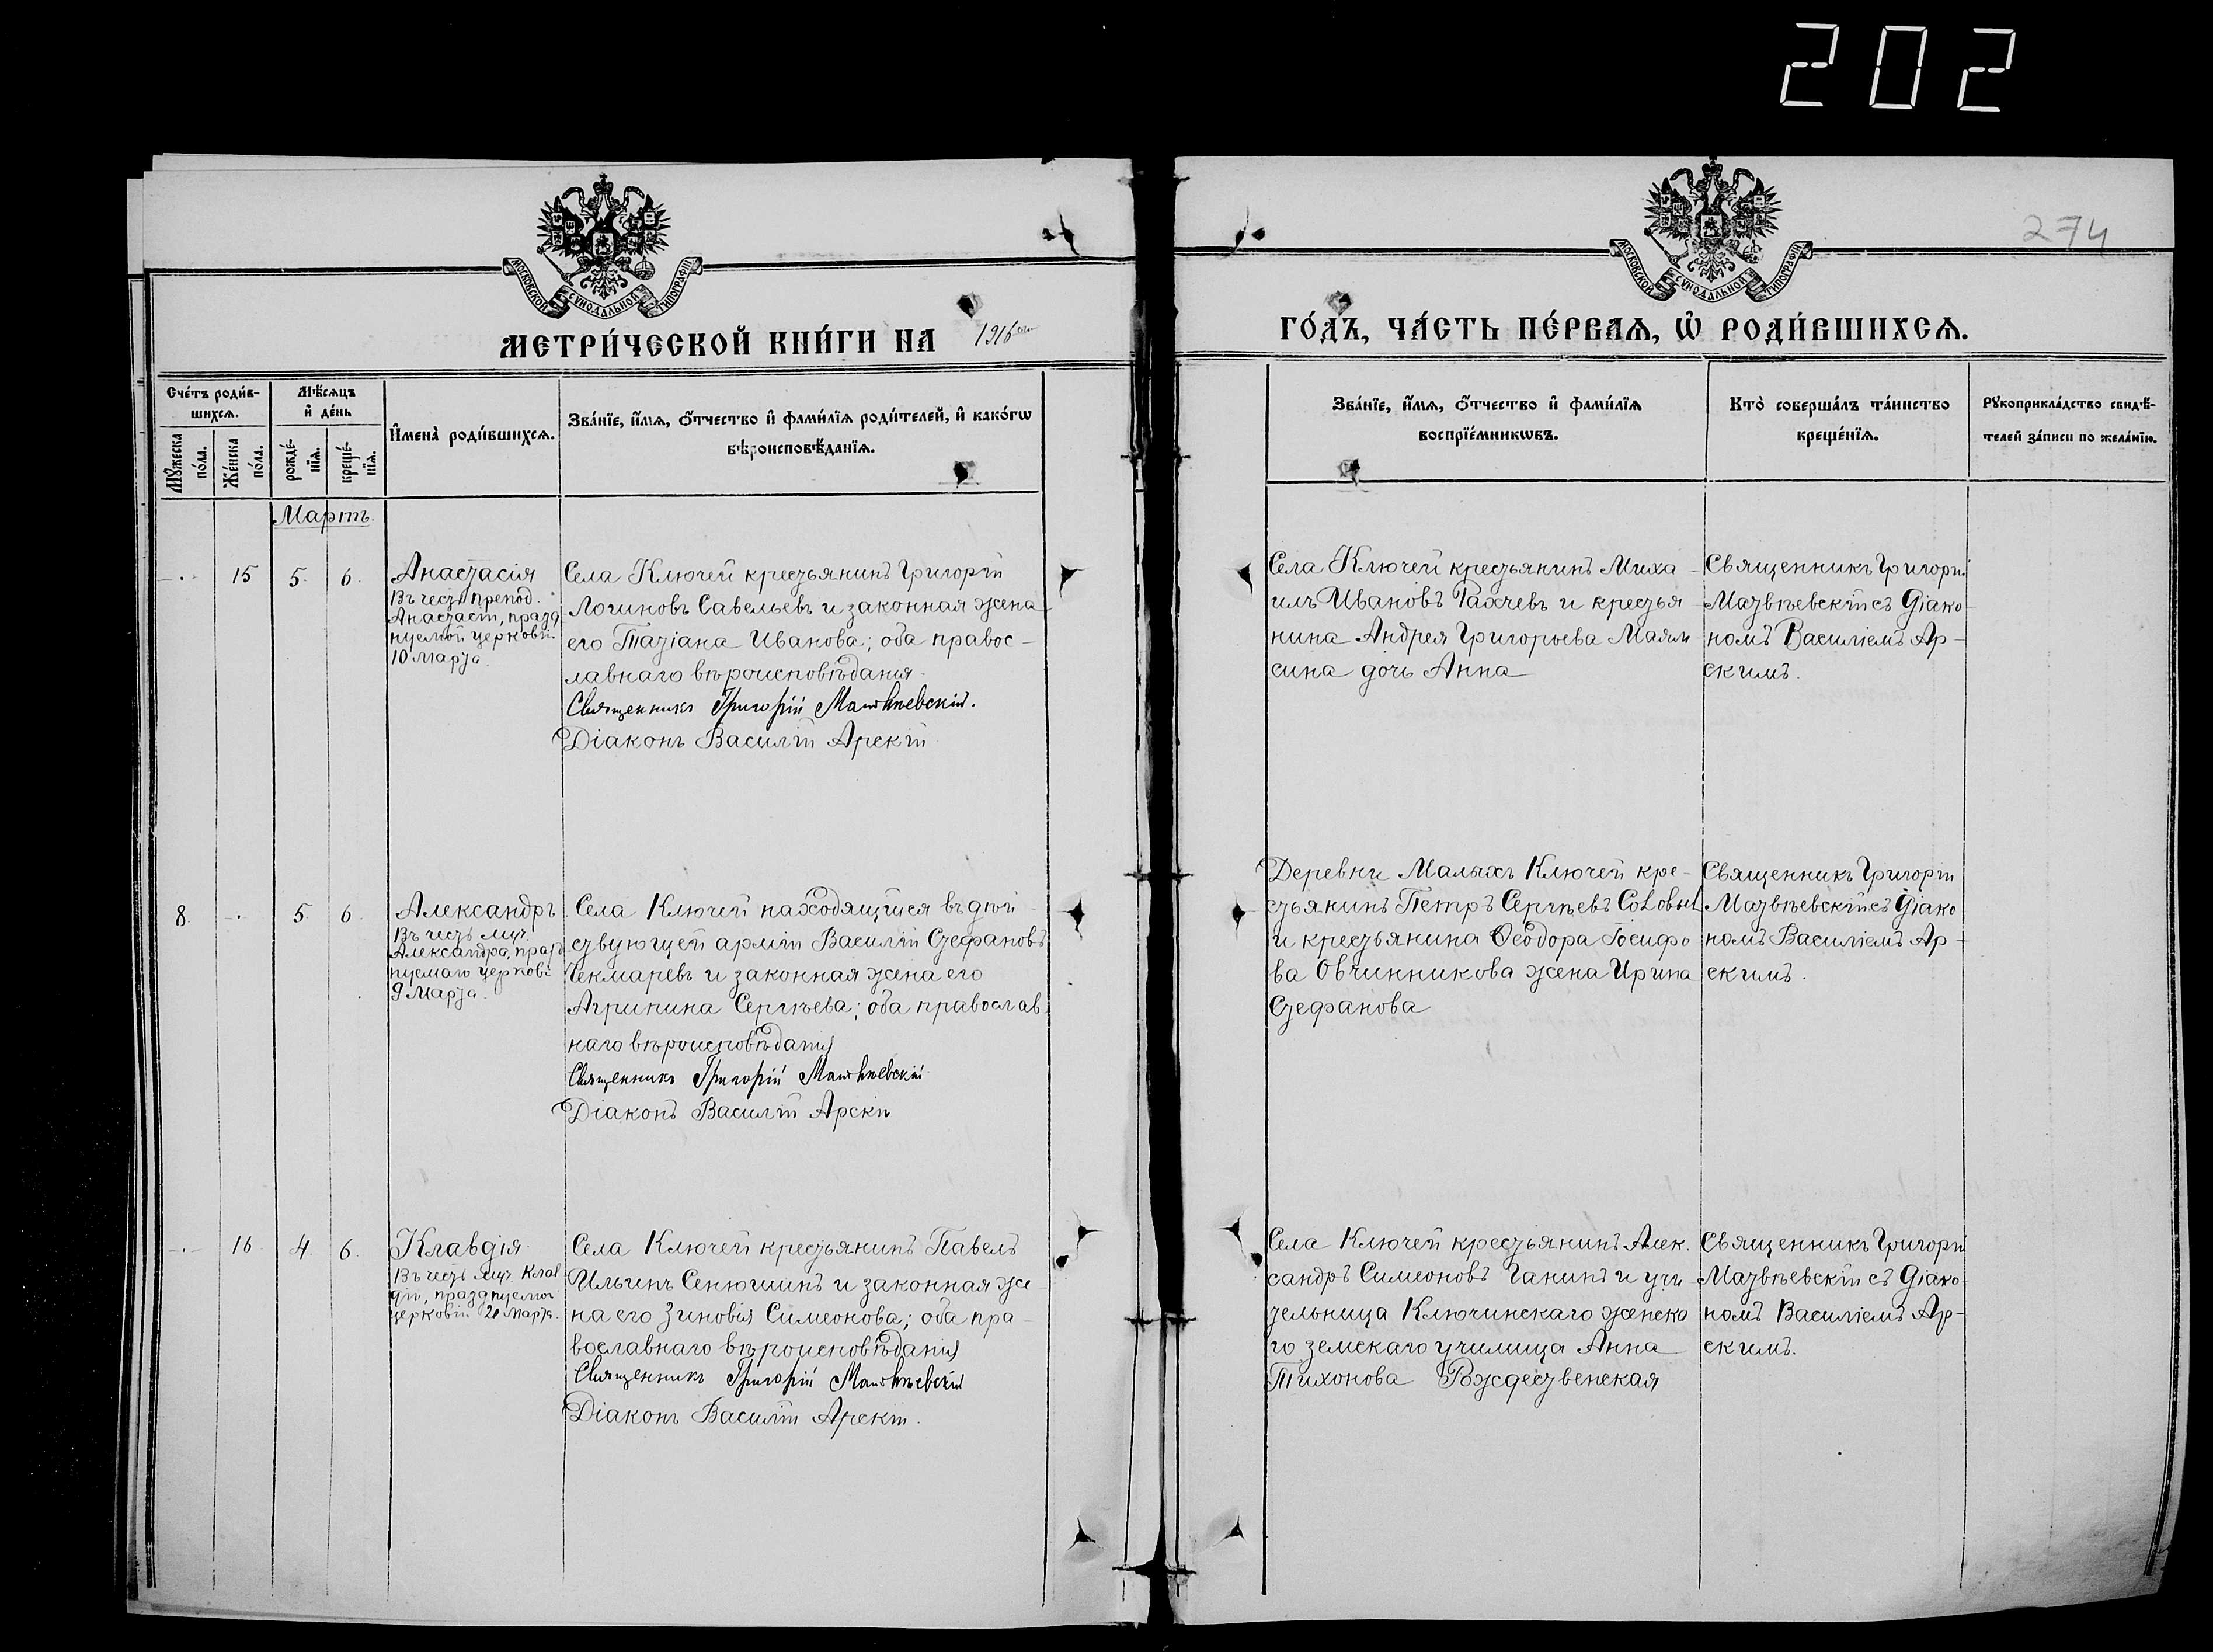 202
274
МОСКОВСКОЙ СУНОДАЛЬНОЙ ТИПОГРАФІИ
МОСКОВСКОЙ СУНОДАЛЬНОЙ ТИПОГРАФІИ
МЕТРИ́ЧЕСКОЙ КНИ́ГИ НА 1916
ГО́ДЪ, ЧА́СТЬ ПЕ́РВАѦ, Ѡ҆ РОДИ́ВШИХСѦ.
Сче́тъ роди́в-
шихсѧ.
Мꙋ́жеска
по́ла.
Же́нска
по́ла.
Мѣ́сѧцъ
и҆ де́нь
рожде́-
нїѧ.
креще́-
нїѧ.
И҆мена̀ роди́вшихсѧ.
Зва́нїе, и҆́мѧ, ѻ҆́тчество и҆ фами́лїѧ роди́телей, и҆ како́гѡ
вѣроисповѣ́данїѧ.
Зва́нїе, и҆́мѧ, ѻ҆́тчество и҆ фами́лїѧ
воспрїе́мникѡвъ.
Кто̀ соверша́лъ та́инство
креще́нїѧ.
Рꙋкоприкла́дство свидѣ́-
телей за́писи по жела́нїю.
Мартъ.
15 5. 6.
Анастасія
Въ честь препод.
Анастасіи, празд
нуемой церковію
10 марта.
Села Ключей крестьянинъ Григорій
Логиновъ Савельевъ и законная жена
его Татіана Иванова; оба правос-
лавнаго вѣроисповѣданія.
Священникъ Григорій Матвѣевскій.
Діаконъ Василій Арскій
Села Ключей крестьянинъ Миха-
илъ Ивановъ Рахчевъ и крестья
нина Андрея Григорьева
дочь Анна
Священникъ Григорій
Матвѣевскій съ Діако-
номъ Василіемъ Ар-
скимъ.
8. 5. 6.
Александръ.
Въ честь муч.
Александра, празд
нуемаго церковію
9 Марта.
Села Ключей находящійся въ дѣй-
ствующей арміи Василій Стефановъ
Чекмаревъ и законная жена его
Агрипина Сергѣева; оба православ-
наго вѣроисповѣданія
Священникъ Григорій Матвѣевскій
Діаконъ Василій Арскій
Деревни Малыхъ Ключей кре-
стьянинъ Петръ Сергѣевъ Соловых
и крестьянина Ѳеодора Іосифо
ва Овчинникова жена Ирина
Стефанова
Священникъ Григорій
Матвѣевскій съ Діако
номъ Василіемъ Ар-
скимъ.
16 4. 6.
Клавдія
Въ честь муч. Клав
діи, празднуемой
церковію 20 марта.
Села Ключей крестьянинъ Павелъ
Ильинъ Сенюшинъ и законная же
на его Зиновія Симеонова; оба пра-
вославнаго вѣроисповѣданія
Священникъ Григорій Матвѣевскій
Діаконъ Василій Арскій.
Села Ключей крестьянинъ Алек-
сандръ Симеоновъ Ганинъ и учи-
тельница Ключинскаго женско
го земскаго училища Анна
Тихонова Рождественская
Священникъ Григорій
Матвѣевскій съ Діако
номъ Василіемъ Ар-
скимъ.